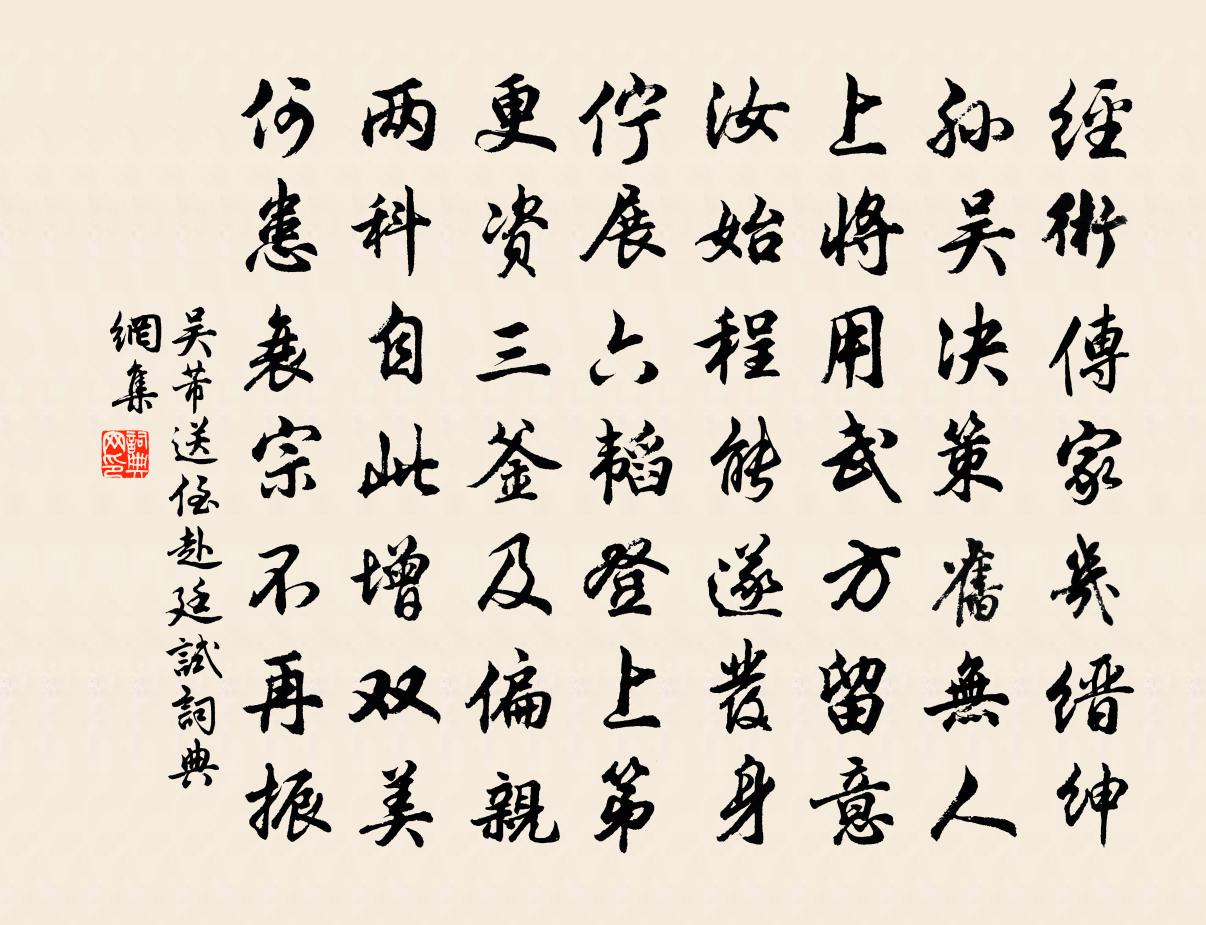 經術傳家幾縉紳
孙吴决策舊無人
上將用武方留意
汝始程能遂發身
佇展六韬登上第
更资三釜及偏親
两科自此增双美
何患衰宗不再振
吴芾送侄赴廷試詞典
網集
詞典
网印